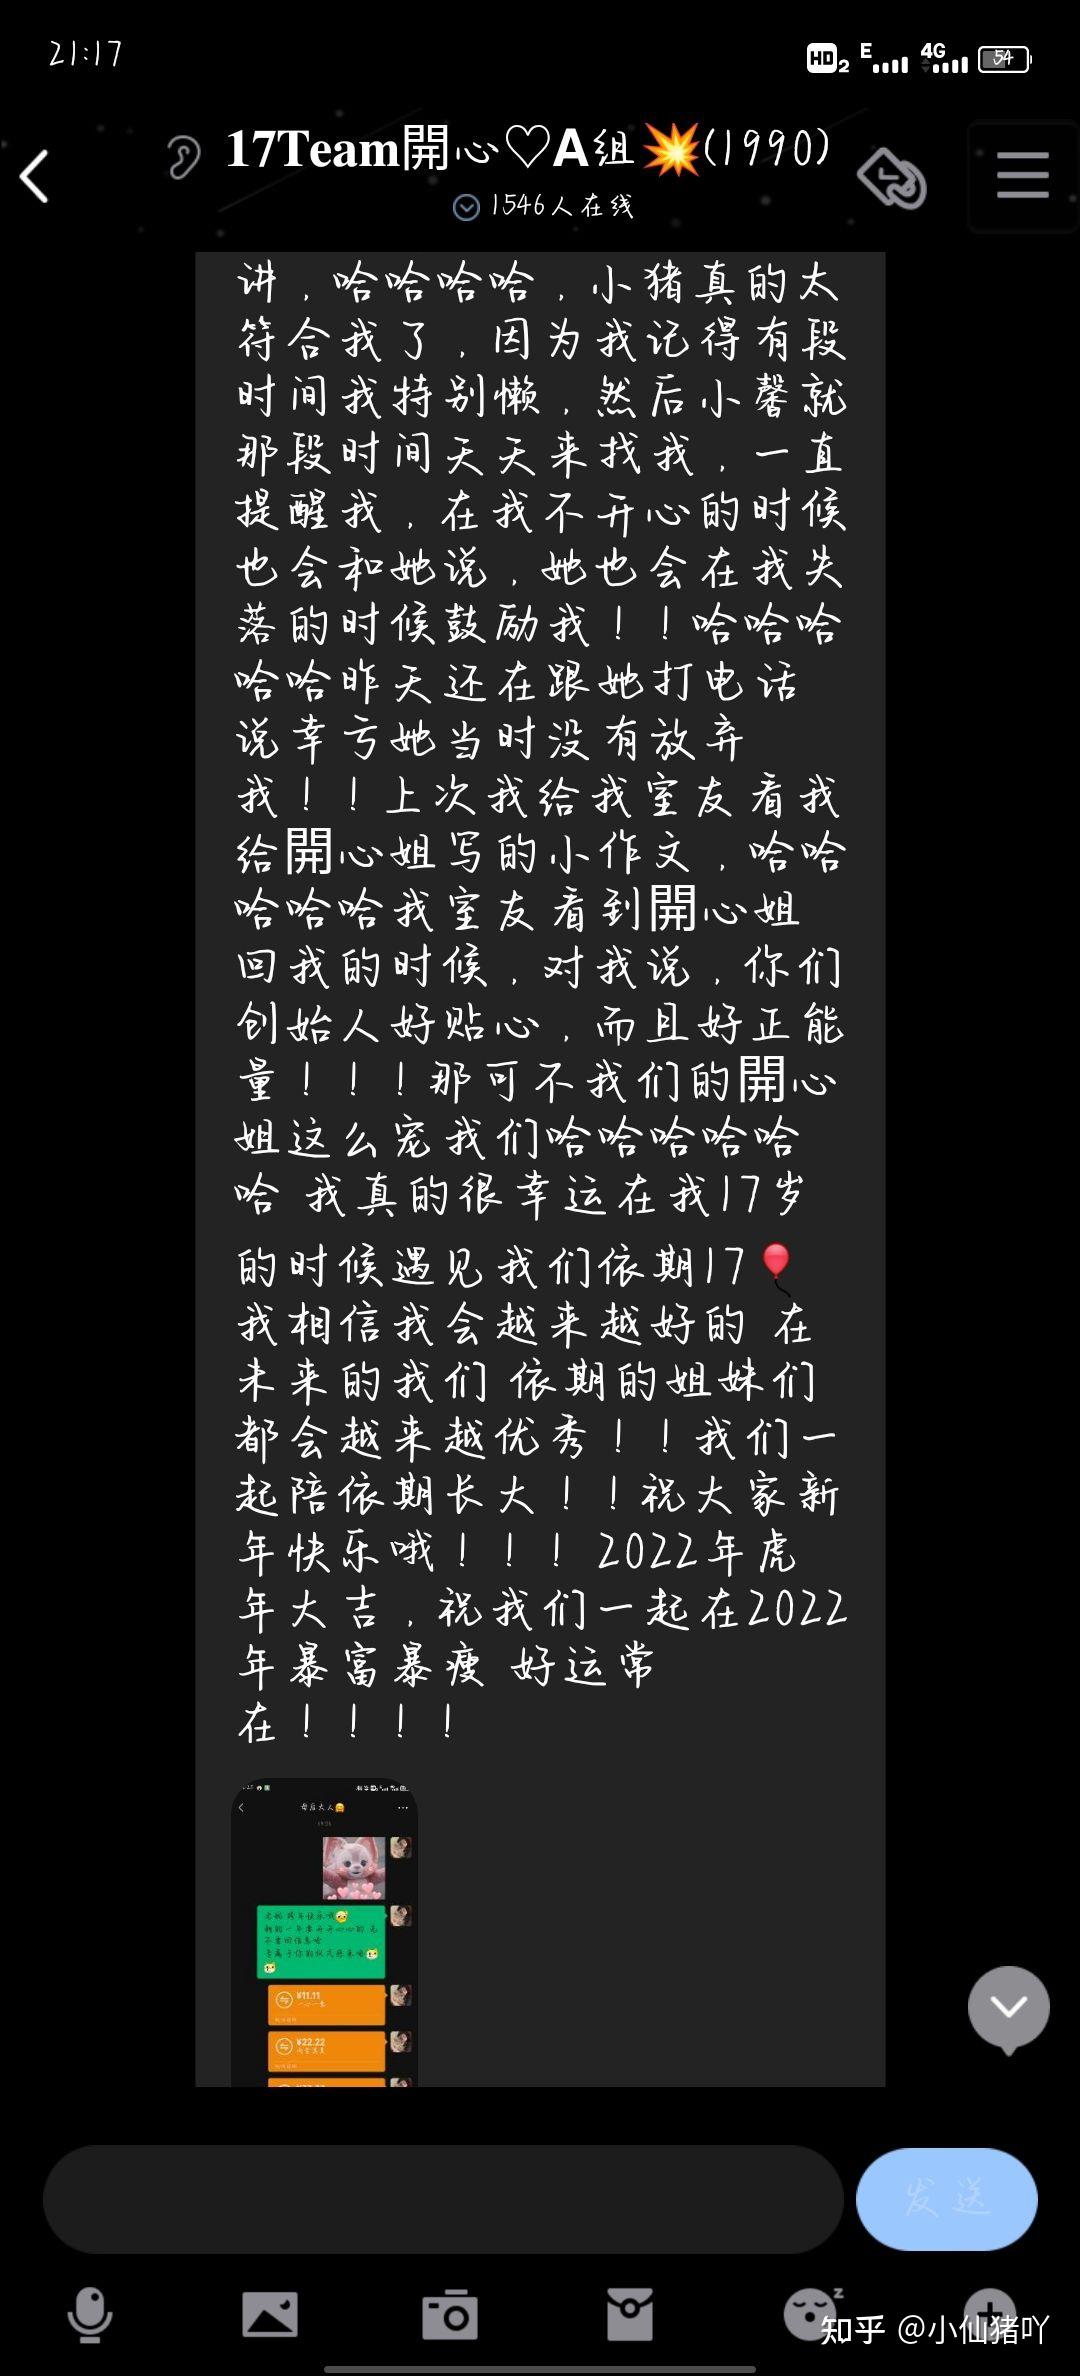 21:17
HD2 E 4G 54
17Team開心♡A组💥(1990)
1546人在线
讲，哈哈哈哈，小猪真的太
符合我了，因为我记得有段
时间我特别懒，然后小馨就
那段时间天天来找我，一直
提醒我，在我不开心的时候
也会和她说，她也会在我失
落的时候鼓励我！！哈哈哈
哈哈昨天还在跟她打电话
说幸亏她当时没有放弃
我！！上次我给我室友看我
给開心姐写的小作文，哈哈
哈哈哈我室友看到開心姐
回我的时候，对我说，你们
创始人好贴心，而且好正能
量！！！那可不我们的開心
姐这么宠我们哈哈哈哈哈
哈 我真的很幸运在我17岁
的时候遇见我们依期17🎈
我相信我会越来越好的 在
未来的我们 依期的姐妹们
都会越来越优秀！！我们一
起陪依期长大！！祝大家新
年快乐哦！！！2022年虎
年大吉，祝我们一起在2022
年暴富暴瘦 好运常
在！！！！
母后大人
¥11.11
¥22.22
发送
知乎 @小仙猪吖